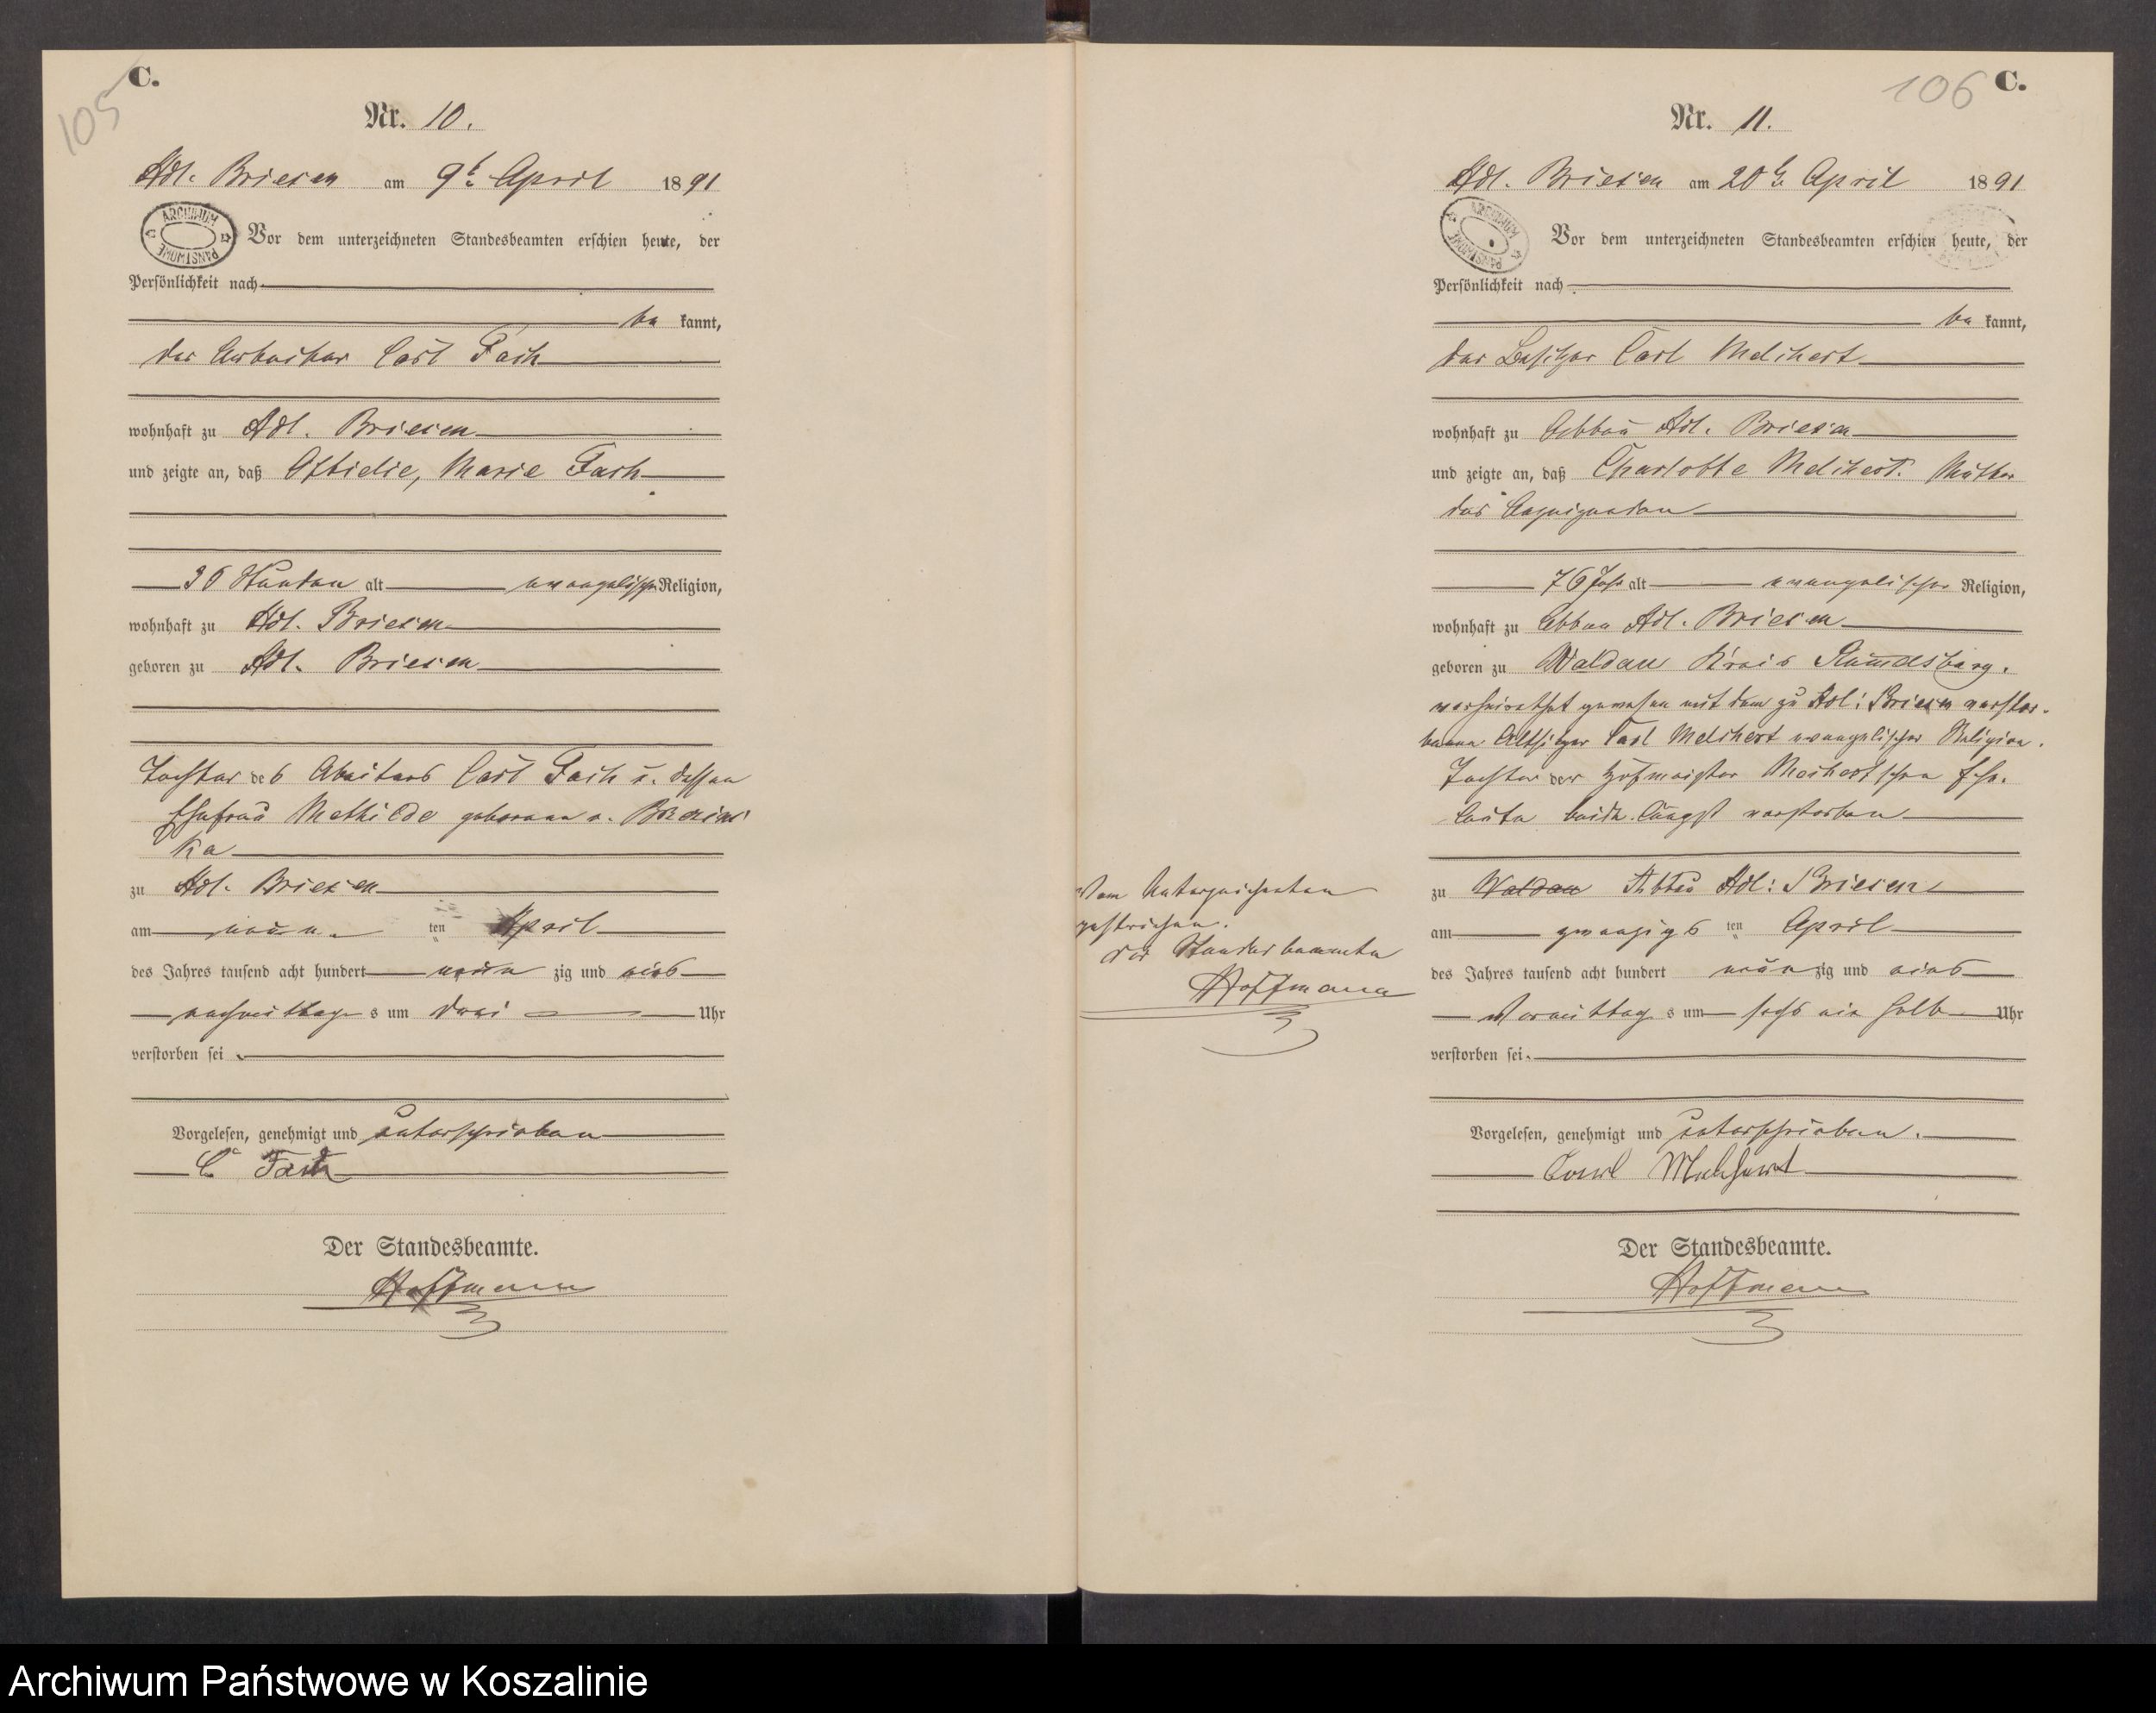 105
C.
Nr. 10.
Adl. Briesen am 9t. April 1891
ARCHIWUM PAŃSTWOWE
Vor dem unterzeichneten Standesbeamten erschien heute, der
Persönlichkeit nach
be kannt,
der Arbeiter Carl
wohnhaft zu Adl. Briesen
und zeigte an, daß Marie
36 Stunden alt evangelischer Religion,
wohnhaft zu Adl. Briesen
geboren zu Adl. Briesen
Tochter des Carl u. dessen
Ehefrau Mathilde geborene v.
ka
zu Adl. Briesen
am neun ten April
des Jahres tausend acht hundert neun zig und eins
nachmittag s um drei Uhr
verstorben sei
Vorgelesen, genehmigt und unterschrieben
C.
Der Standesbeamte.
Hoffmann
106 C.
Nr. 11.
Adl. Briesen am 20t. April 1891
ARCHIWUM PAŃSTWOWE
Vor dem unterzeichneten Standesbeamten erschien heute, der
Persönlichkeit nach
be kannt,
der Besitzer Carl Melchert
wohnhaft zu Abbau Adl. Briesen
und zeigte an, daß Charlotte Melchert. Mutter
des Anzeigenden
76 Jahr alt evangelischer Religion,
wohnhaft zu Abbau Adl. Briesen
geboren zu Waldau Kreis Rummelsburg.
verheirathet gewesen mit dem zu Adl: Briesen verstor-
benen Altsitzer Carl Melchert evangelischer Religion.
Tochter der Hofmeister schen Ehe-
leute beide längst verstorben
zu Waldau Abbau Adl: Briesen
am zwanzigs ten April
des Jahres tausend acht hundert neun zig und eins
Vormittag s um sechs ein halb Uhr
verstorben sei.
Vorgelesen, genehmigt und unterschrieben.
Carl Melchert
Der Standesbeamte.
Hoffmann
Vom Unterzeichneten
gestrichen.
Der Standesbeamte
Hoffmann
Archiwum Państwowe w Koszalinie